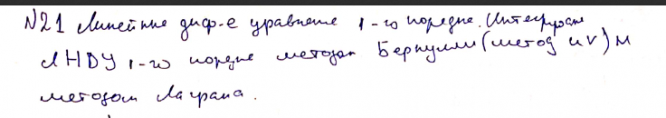 N21 Линейные диф-е уравнение 1-го порядка. Интегрир
ЛНДУ 1-го порядк методом Бернулли (метод uv) и
методом Лагранжа.